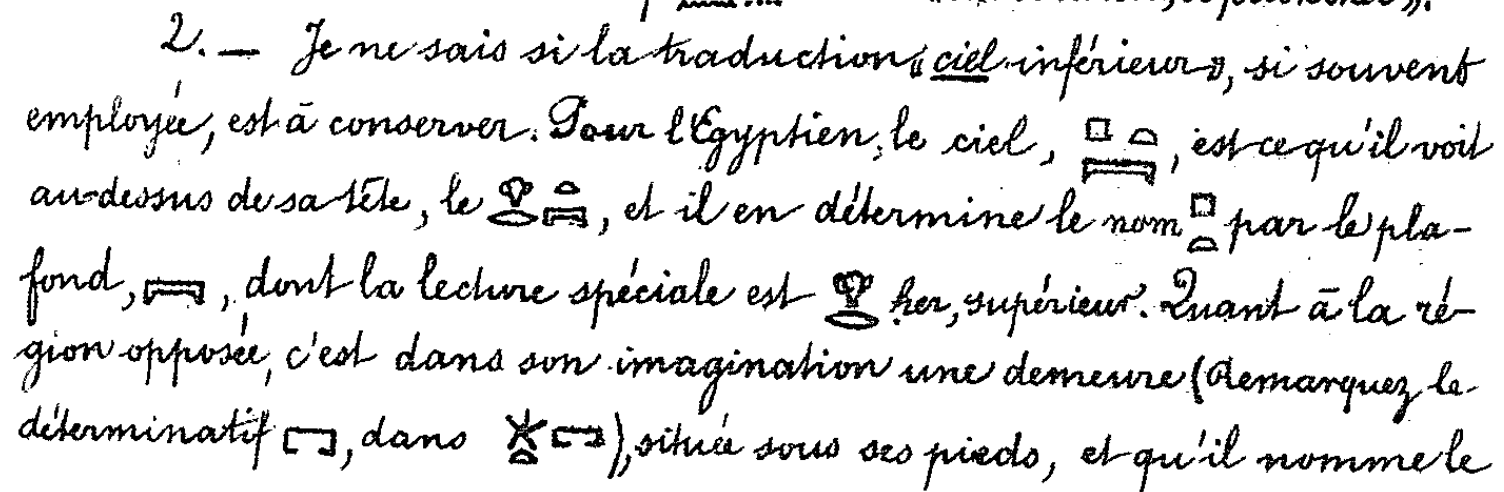 2. — Je ne sais si la traduction « ciel inférieur », si souvent
employée, est à conserver. Pour l'Egyptien, le ciel, 𓊪𓏏𓇯, est ce qu'il voit
au-dessus de sa tête, le 𓁷𓂋𓏏𓇯, et il en détermine le nom 𓊪𓏏 par le pla-
fond, 𓇯, dont la lecture spéciale est 𓁷𓂋 her, supérieur. Quant à la ré-
gion opposée, c'est dans son imagination une demeure (Remarquez le
déterminatif 𓉐, dans 𓇼𓏏𓉐), située sous ses pieds, et qu'il nomme le